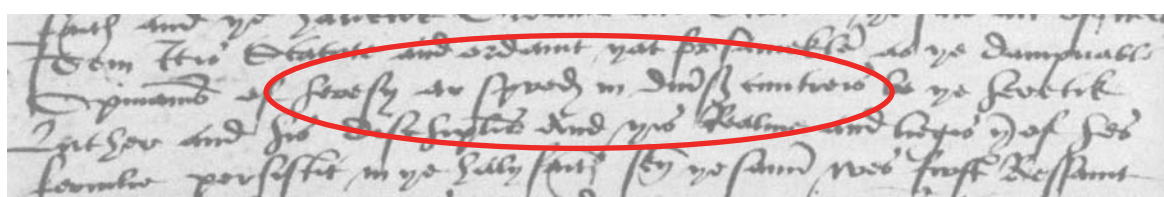 faith and ye
Item It is Statute and ordanit yat forsamekle as ye dampnable
Opinions of heresy ar spred in diuerß cuntreis be ye heretik
Luther and his dischiplis And yis Realme and liegis yof hes
fermlie persistit in ye haly faith sen ye samin wes first Ressauit